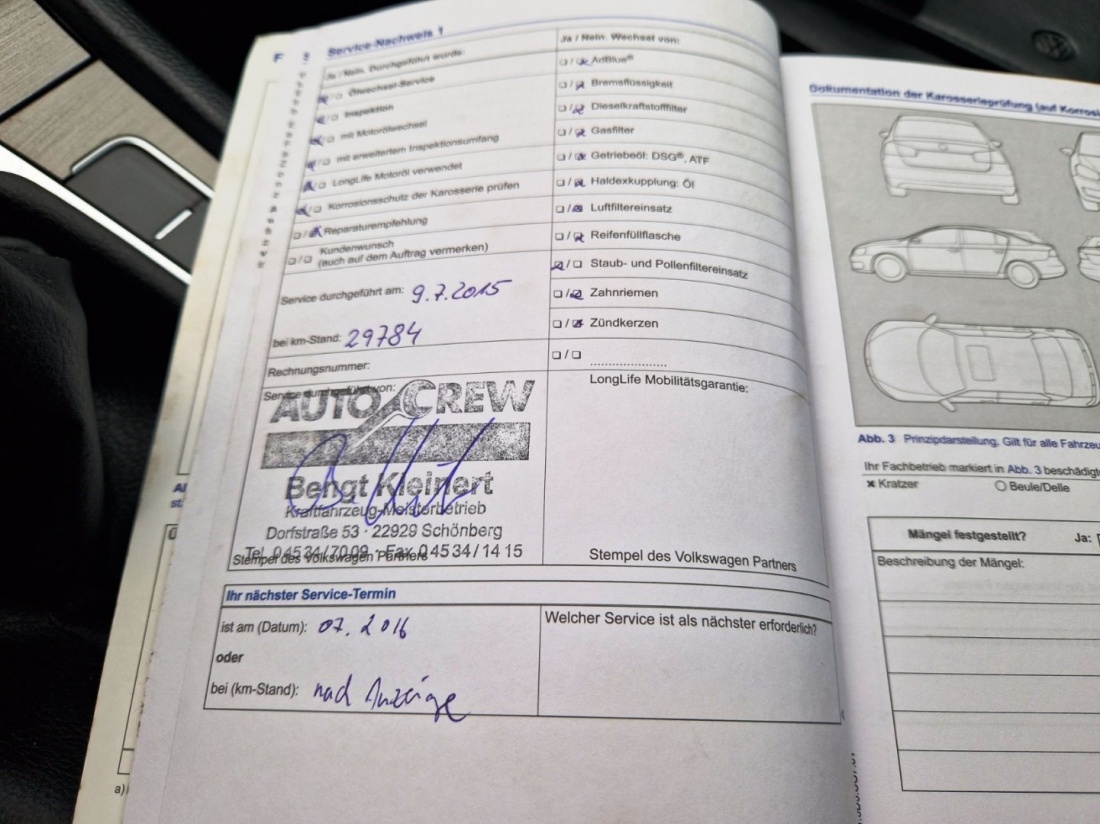 Service-Nachweis 1
Ja / Nein. Durchgeführt wurde:
Ölwechsel-Service
Inspektion
mit Motorölwechsel
mit erweitertem Inspektionsumfang
LongLife Motoröl verwendet
Korrosionsschutz der Karosserie prüfen
Reparaturempfehlung
Kundenwunsch
(auch auf dem Auftrag vermerken)
Service durchgeführt am: 9.7.2015
bei km-Stand: 29784
Rechnungsnummer:
Service durchgeführt von:
AUTO CREW
Bengt Kleinert
Kraftfahrzeug-Meisterbetrieb
Dorfstraße 53 · 22929 Schönberg
Tel. 04534/7009 · Fax 04534/1415
Stempel des Volkswagen Partners
Ja / Nein. Wechsel von:
AdBlue®
Bremsflüssigkeit
Dieselkraftstofffilter
Gasfilter
Getriebeöl: DSG®, ATF
Haldexkupplung: Öl
Luftfiltereinsatz
Reifenfüllflasche
Staub- und Pollenfiltereinsatz
Zahnriemen
Zündkerzen
LongLife Mobilitätsgarantie:
Stempel des Volkswagen Partners
Ihr nächster Service-Termin
ist am (Datum): 07. 2016
oder
bei (km-Stand): nach Anzeige
Welcher Service ist als nächster erforderlich?
Dokumentation der Karosserieprüfung (auf Korrosi
Abb. 3 Prinzipdarstellung. Gilt für alle Fahrzeu
Ihr Fachbetrieb markiert in Abb. 3 beschädigte
× Kratzer
Beule/Delle
Mängel festgestellt?
Ja:
Beschreibung der Mängel:
a)